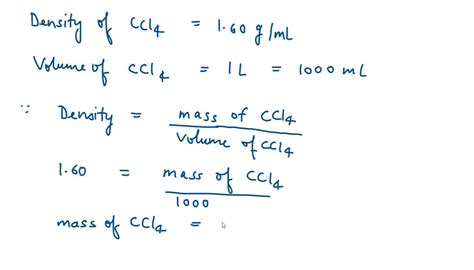 Density of CCl4 = 1.60 g/mL
Volume of CCl4 = 1L = 1000 mL
∵ Density = mass of CCl4
Volume of CCl4
1.60 = mass of CCl4
1000
mass of CCl4 =